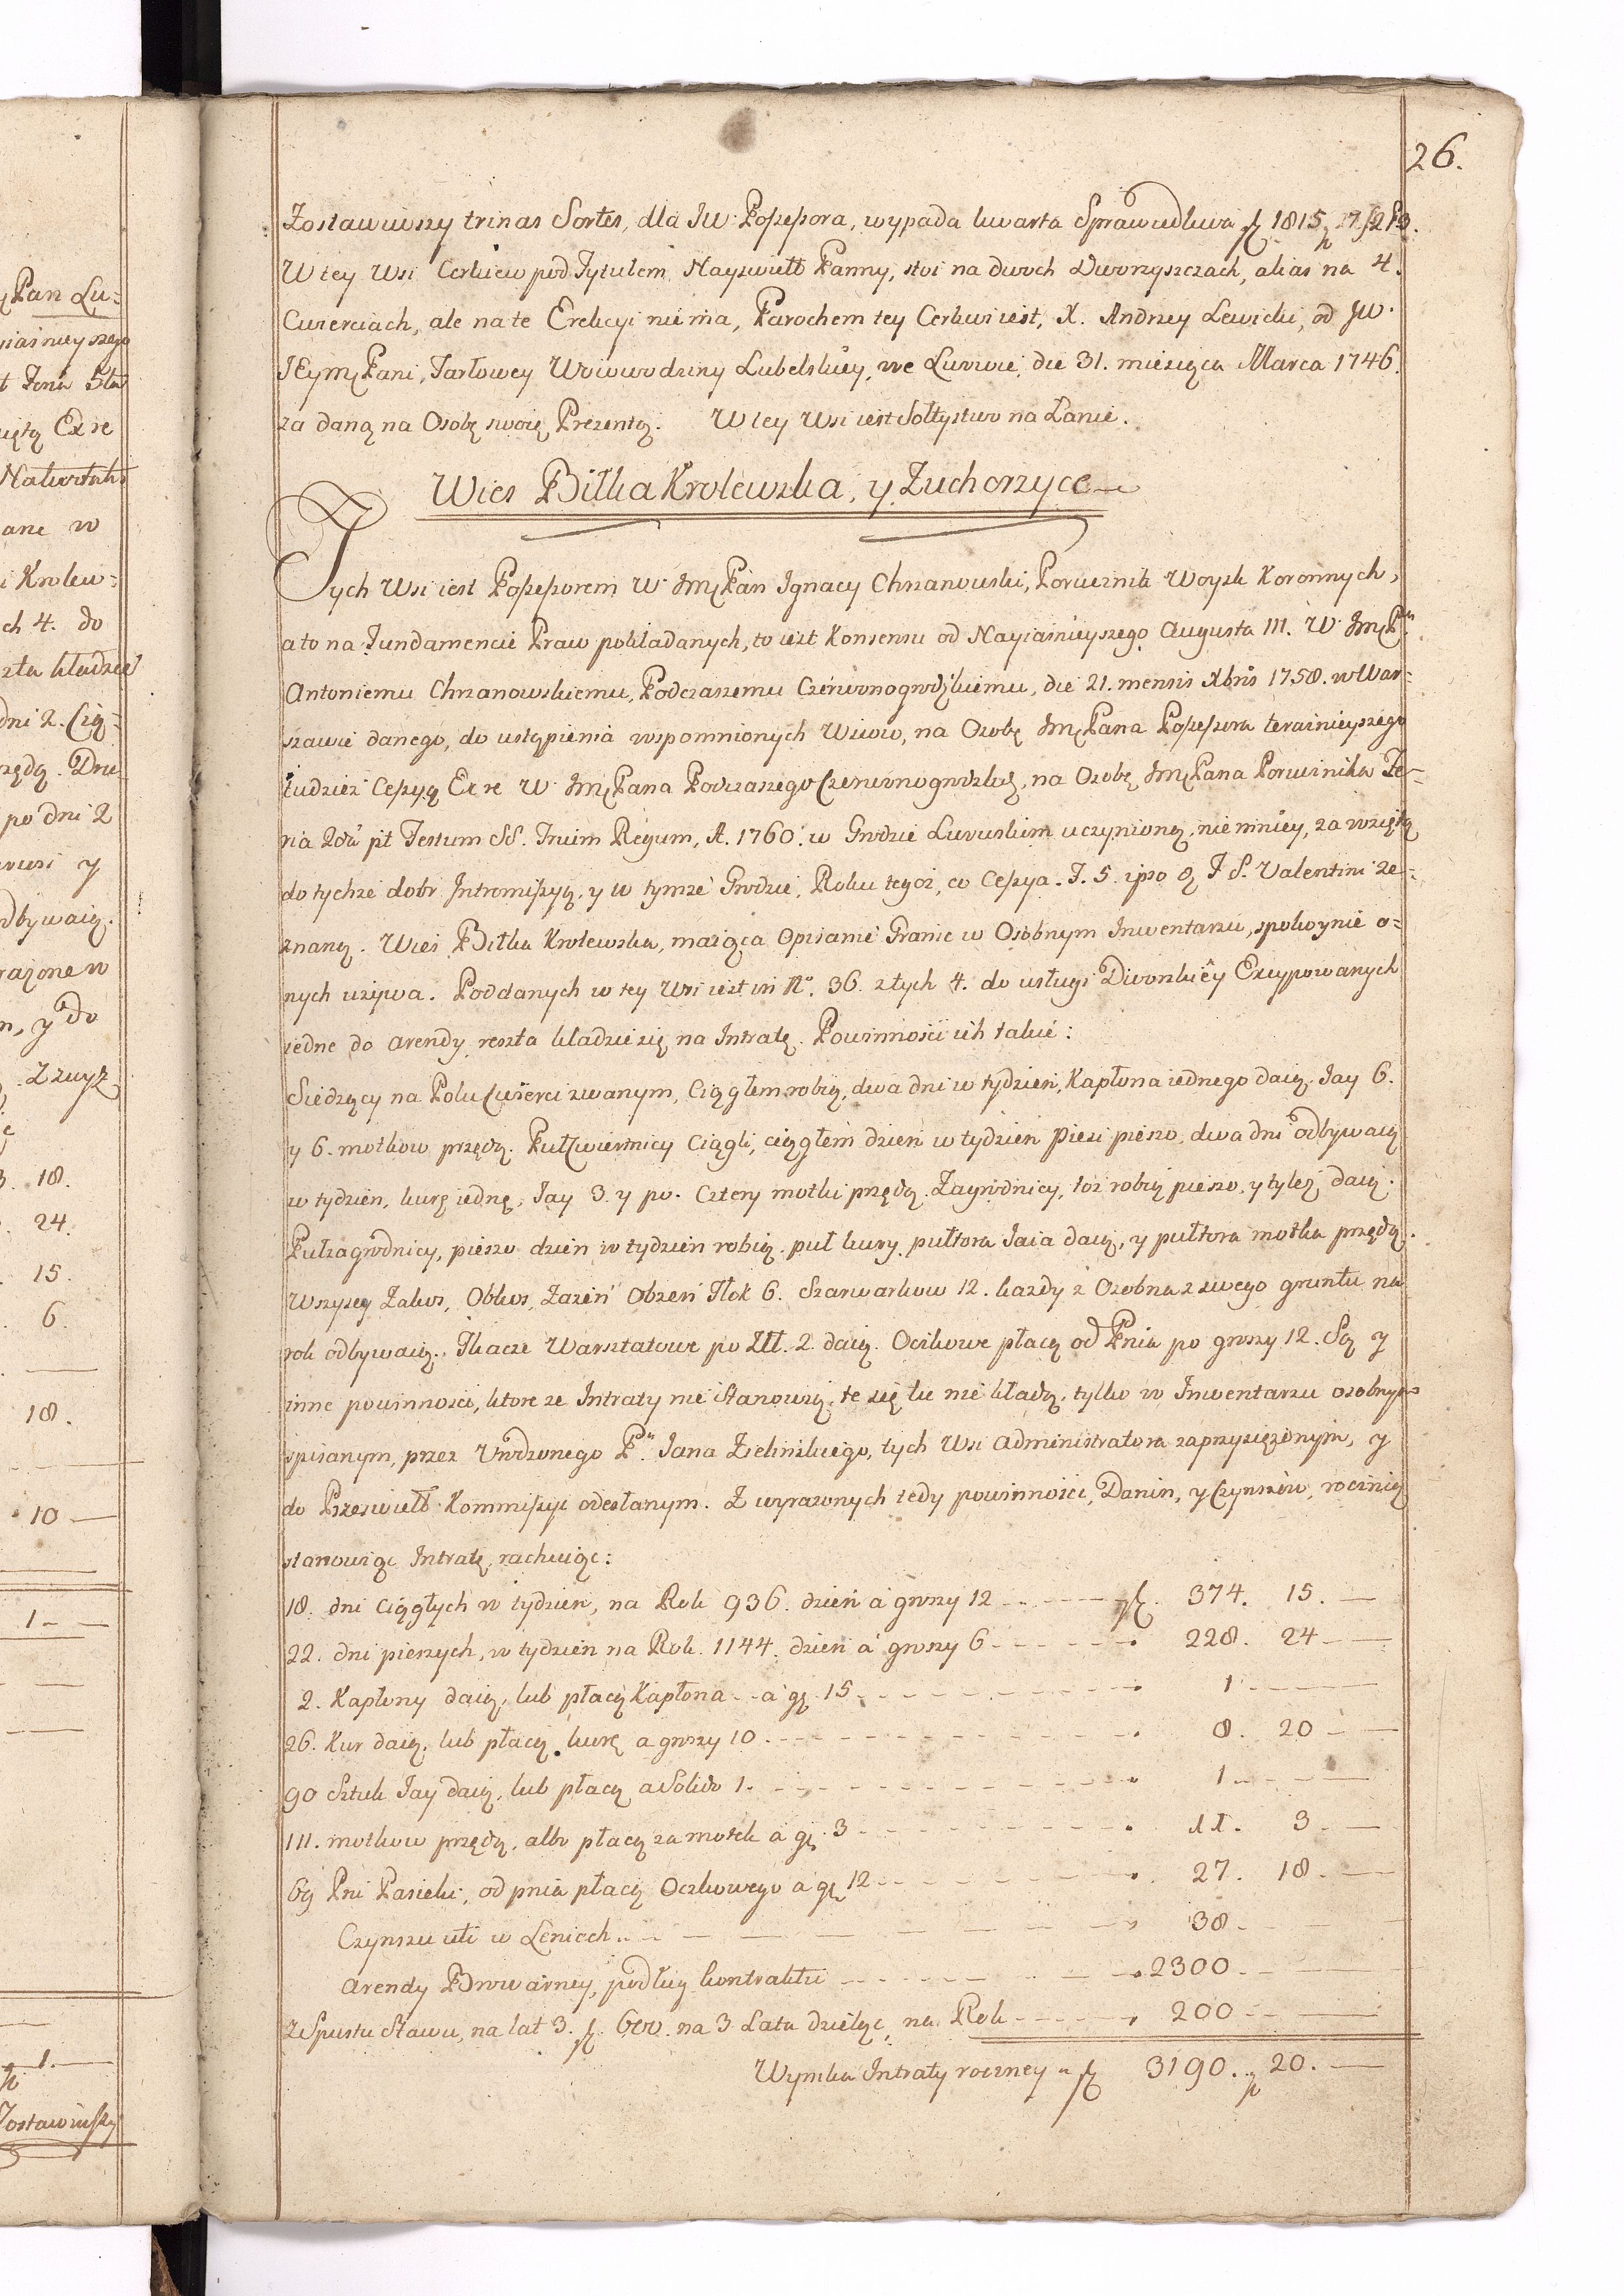 26.
Zostawiwszy trinas Sortes, dla JW: Possessora, wypada kwarta Sprawiedliwa zł 1815
W tey Wsi Cerkiew pod Tytułem Nayświętt Panny, stoi na dwoch Dworzyszczach, alias na 4.
Cwierciach, ale na te Erekcyi niema, Parochem tey Cerkwi iest, X. Andrzey Lewicki, od JW.
JEymć Pani, Tarłowey Woiewodziny Lubelskiey, we Lwowie, die 31. miesiąca Marca 1746.
za daną na Osobę swoię Prezentą. W tey Wsi iest Sołtystwo na Łanie.
Wies Biłka Krolewska, y Zuchorzyce
Tych Wsi iest Possessorem W. Jmć Pan Ignacy Chrzanowski, Porucznik Woysk Koronnych,
a to na Fundamencie Praw pokładanych, to iest Konsensu od Nayiaśnieyszego Augusta III. W. Jmć Pu
Antoniemu Chrzanowskiemu, Podczaszemu Czerwonogrodzkiemu, die 21. mensis Xbris 1758. w War-
szawie danego, do ustąpienia wspomnionych Wsiow, na Osobę Jmć Pana Possessora teraźnieyszego
tudzież Cessyą Ex re W. Jmć Pana Podczaszego Czerwonogrodzka, na Osobę Jmć Pana Porucznika Fe-
ria 2da pt Festum SS. Trium Regum, A. 1760. w Grodzie Lwowskim uczynioną, niemniey, za wziętą
do tychże dobr Intromissyą, y w tymże Grodzie, Roku tegoż, co Cessya. F. 5. ipso F S. Valentini ze-
znaną. Wieś Biłka Krolewska, maiąca Opisanie Granic w Osobnym Inwentarzu, spokoynie o-
nych używa. Poddanych w tey Wsi iest in No. 36. z tych 4. do usługi Dworskiey Excypowanych
ieden do Arendy reszta kładzie się na Intratę. Powinności ich takie:
Siedzący na Polu Cwierci zwanym, Ciągłem robią, dwa dni w tydzień, Kapłona iednego daią. Jay 6.
y 6. motkow przędą. Pułcwiertnicy Ciągli, ciągłem dzień w tydzień Piesi pieszo, dwa dni odbywaią
w tydzien, kurę iednę, Jay 3. y po. Cztery motki przędą. Zagrodnicy, toż robią pieszo, y tyleż daią.
Pułzagrodnicy, pieszo dzień w tydzień robią. puł kury, pułtora Jaia daią, y pułtora motka przędą.
Wszyscy Zakos, Obkos, Zażeń Obżeń Tłok 6. Szarwarkow 12. każdy z Osobna z swego gruntu na
rok odbywaią. Tkacze Warsztatowe po Złł. 2. daią. Oczkowe płacą od Pnia po groszy 12. Są y
inne powinności, ktore ze Intraty nie Stanowią, te się tu nie kładą, tylko w Inwentarzu osobnym
spisanym, przez Urodzonego Pu. Jana Zielinskiego, tych Wsi Administratora zaprzysiężonym, y
do Przeświett Kommissyi odesłanym. Z wyrażonych tedy powinności, Danin, y Czynszow, roczną
stanowiąc Intratę, rachuiąc:
18. dni Ciągłych w tydzien, na Rok 936. dzień á groszy 12 - - - zł. 374. 15. —
22. dni pieszych, w tydzien na Rok. 1144. dzień á groszy 6 - - - 228. 24 —
2. Kapłony daią, lub płacą Kapłona - - á gr. 15 - - - 1 —
26. Kur daią, lub płacą kurę a groszy 10. - - - 8. 20 —
90 Sztuk Jay daią, lub płacą a Solido 1. - - - 1 —
111. motkow przędą, albo płacą za motek á gr. 3 - - - 11. 3. —
69 Pni Pasieki, od pnia płacą Oczkowego á gr 12 - - - 27. 18. —
Czynszu in Leniech - - - 38 —
Arendy Browarney, podług kontraktu - - - 2300 —
Z Spustu Stawu, na lat 3. zł. 600. na 3 Lata dzieląc na Rok - - - 200 —
Wynika Intraty roczney zł 3190. gr 20. —
y Pan Lu-
iaśnieyszego
Ex re
ane w
i Krolew-
ch 4. do
szta kładzie
dni 2. Cią-
po dni 2
dbywaią.
rażone w
m, y do
Z zwyż
18.
24
15.
6.
18.
10 —
1 - —
1. —
Zostawiwszy